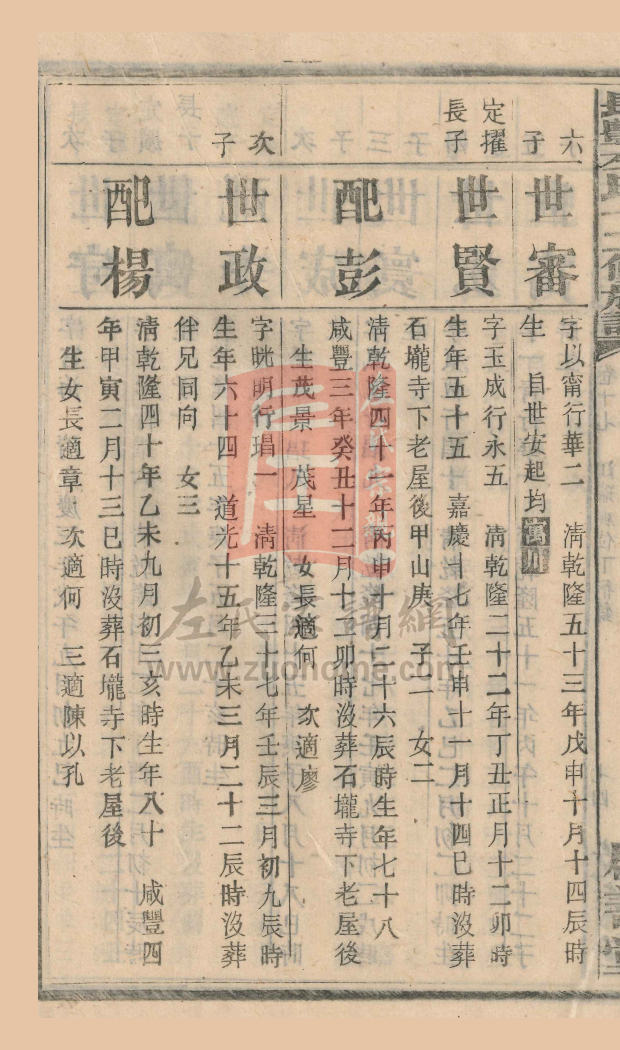 六子
世審
字以甯行華二　淸乾隆五十三年戊申十月十四辰時
生　自世安起均寓川
定擢長子
世賢
字玉成行永五　淸乾隆二十二年丁丑正月十二卯時
生年五十五　嘉慶十七年壬申十一月十四巳時沒葬
石壠寺下老屋後甲山庚　子二　女二
配彭
淸乾隆四十一年丙申十月二十六辰時生年七十八
咸豐三年癸丑十二月十二卯時沒葬石壠寺下老屋後
生茂景　茂星　女長適何　次適廖
次子
世政
字晄明行琩一　淸乾隆三十七年壬辰三月初九辰時
生年六十四　道光十五年乙未三月二十二辰時沒葬
伴兄同向　女三
配楊
淸乾隆四十年乙未九月初三亥時生年八十　咸豐四
年甲寅二月十三巳時沒葬石壠寺下老屋後
生女長適章　次適何　三適陳以孔
左氏家譜網
www.zuohome.com